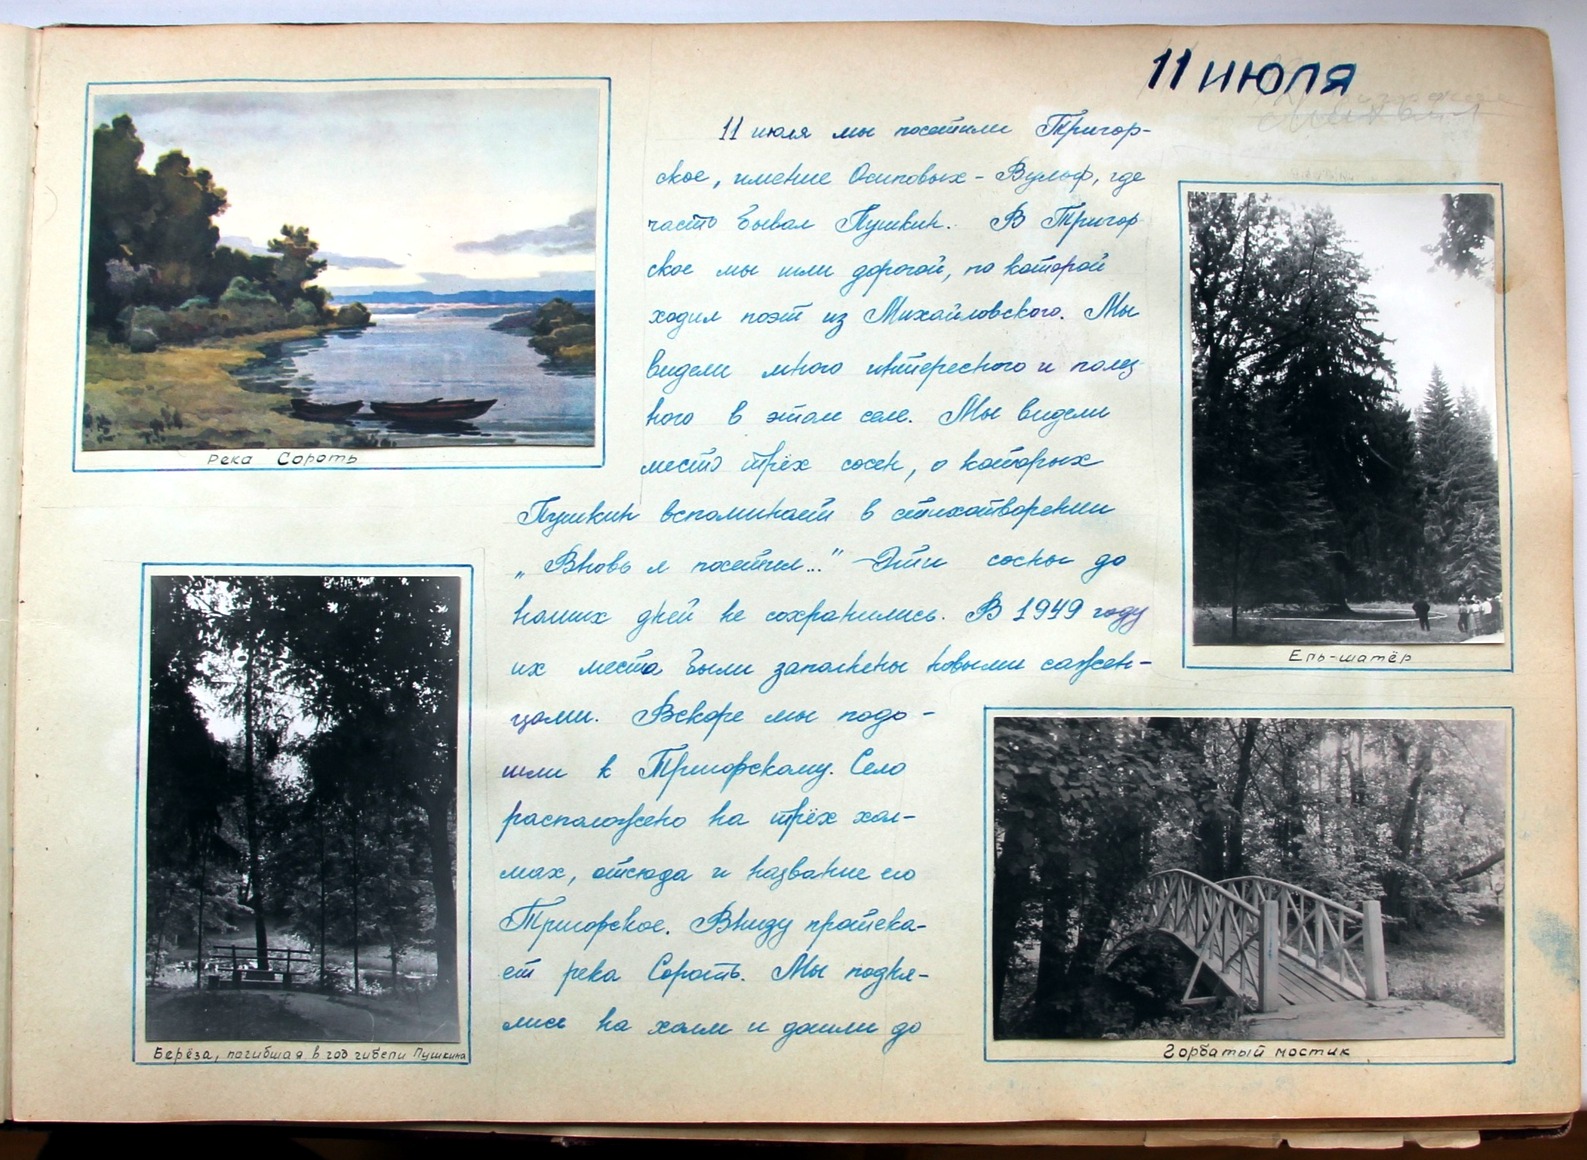 11 июля
11 июля мы посетили Тригор-
ское, имение Осиповых - Вульф, где
часто бывал Пушкин. В Тригор
ское мы шли дорогой, по которой
ходил поэт из Михайловского. Мы
видели много интересного и полез
ного в этом селе. Мы видели
место трёх сосен, о которых
Пушкин вспоминает в стихотворении
„Вновь я посетил..." Эти сосны до
наших дней не сохранились. В 1949 году
их места были заполнены новыми сажен-
цами. Вскоре мы подо-
шли к Тригорскому. Село
расположено на трёх хол-
мах, отсюда и название его
Тригорское. Внизу протека-
ет река Сороть. Мы подня-
лись на холм и дошли до
река Сороть
Ель-шатёр
Берёза, погибшая в год гибели Пушкина
Горбатый мостик